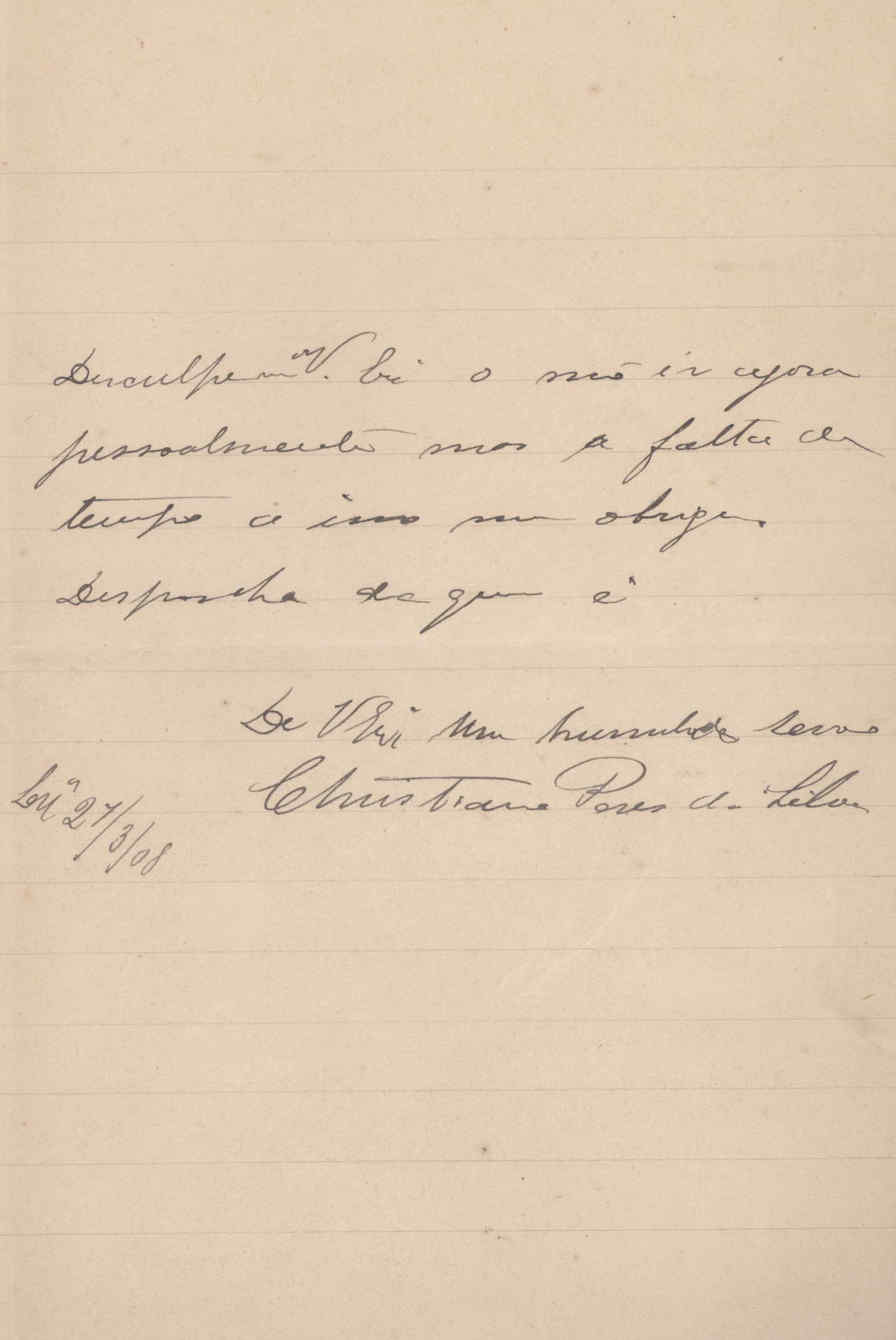 Desculpe-me V. Exª o não ir agora
pessoalmente mas a falta de
tempo a isso me obriga.
Disponha de quem é
De V Exª Um humilde servo
Christiano Peres da Silva
27/3/08